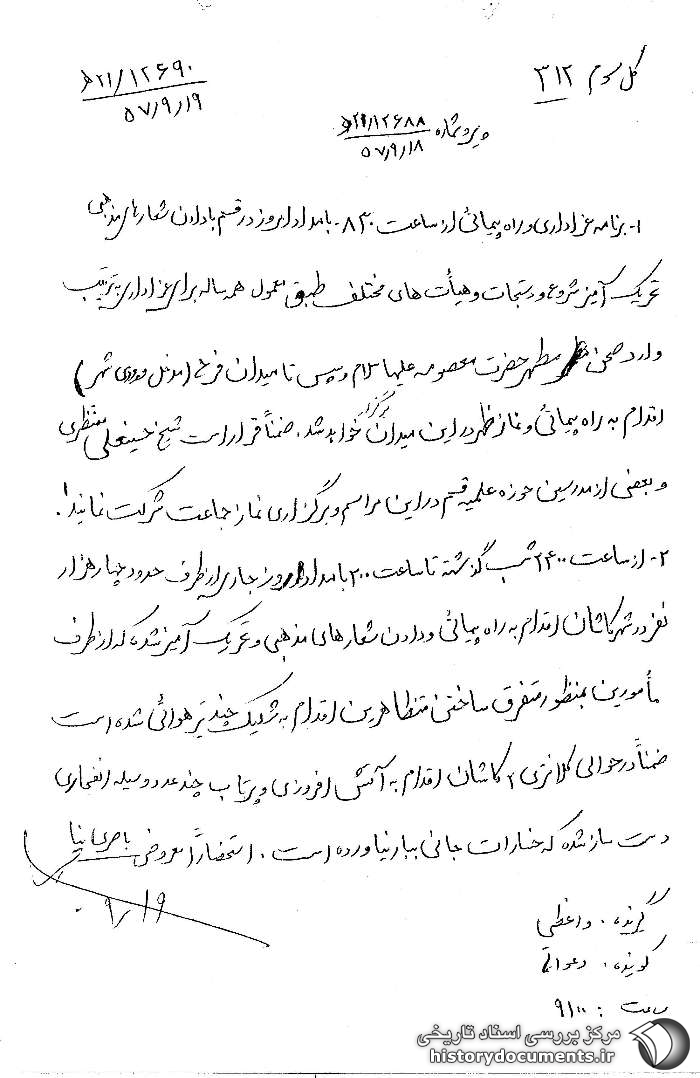 کل سوم ۳۱۲
۲۱/۱۲۶۹۰ه
۵۷/۹/۱۹
پیرو شماره ۲۱/۱۲۶۸۸ه
۵۷/۹/۱۸
۱- برنامه عزاداری و راه پیمائی از ساعت ۸۳۰ بامداد امروز در قم با دادن شعارهای مذهبی
تحریک آمیز شروع و دستجات و هیأت های مختلف طبق معمول همه ساله برای عزاداری به ترتیب
وارد صحن مطهر حضرت معصومه علیها سلام و سپس تا میدان فرح (مدخل ورودی شهر)
اقدام به راه پیمائی و نماز ظهر در این میدان برگزار خواهد شد. ضمناً قرار است شیخ حسینعلی منتظری
و بعضی از مدرسین حوزه علمیه قم در این مراسم و برگزاری نماز جماعت شرکت نمایند.
۲- از ساعت ۲۴۰۰ شب گذشته تا ساعت ۲۰۰ بامداد روز جاری از طرف حدود چهار هزار
نفر در شهر کاشان اقدام به راه پیمائی و دادن شعارهای مذهبی و تحریک آمیز شده که از طرف
مأمورین بمنظور متفرق ساختن متظاهرین اقدام به شلیک چند تیر هوائی شده است
ضمناً در حوالی کلانتری ۲ کاشان اقدام به آتش افروزی و پرتاب چند عدد وسیله انفجاری
دست ساز شده که خسارات جانی ببار نیاورده است. استحضاراً معروض
۹/۱۹
گیرنده. واعظی
گوینده.
ساعت: ۹۱۰۰
مرکز بررسی اسناد تاریخی
historydocuments.ir